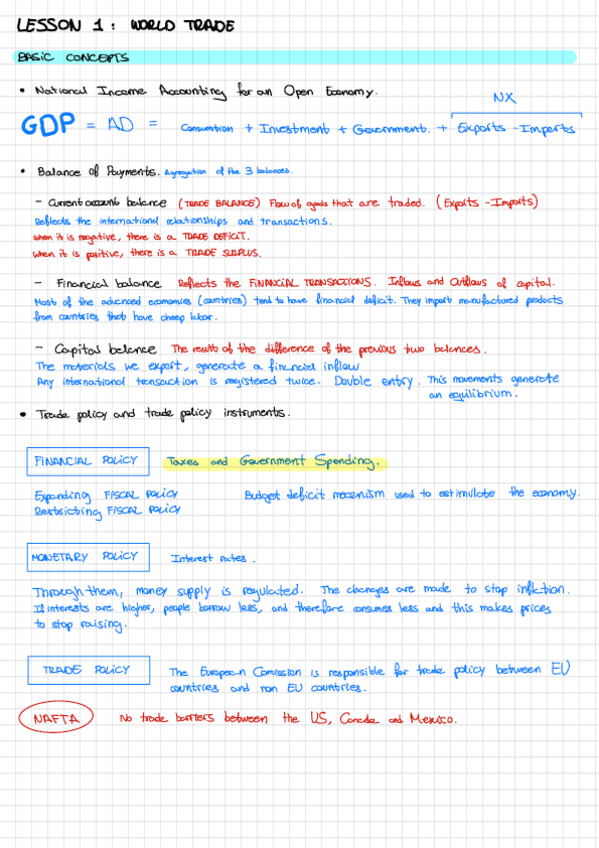 LESSON 1: WORLD TRADE
BASIC CONCEPTS
• National Income Accounting for an Open Economy.
NX
GDP = AD = Consumtion + Investment + Government. + Exports - Imports
• Balance of Payments. Agregation of the 3 balances.
- Current account balance (TRADE BALANCE) Flow of goods that are traded. (Exports - Imports)
Reflects the international relationships and transactions.
When it is negative, there is a TRADE DEFICIT.
When it is positive, there is a TRADE SURPLUS.
- Financial balance Reflects the FINANCIAL TRANSACTIONS. Inflows and Outflows of capital.
Most of the advanced economies (countries) tend to have financial deficit. They import manufactured products
from countries that have cheep labor.
- Capital balance The result of the difference of the previous two balances.
The materials we export, generate a financial inflow
Any international transaction is registered twice. Double entry. This movements generate
an equilibrium.
• Trade policy and trade policy instruments.
FINANCIAL POLICY Taxes and Government Spending.
Expanding FISCAL POLICY Budget deficit mecanism used to estimulate the economy.
Restricting FISCAL POLICY
MONETARY POLICY Interest rates.
Through them, money supply is regulated. The changes are made to stop inflation.
If interests are higher, people borrow less, and therefore consumes less and this makes prices
to stop raising.
TRADE POLICY The European Comission is responsible for trade policy between EU
countries and non EU countries.
NAFTA No trade barriers between the US, Canada and Mexico.